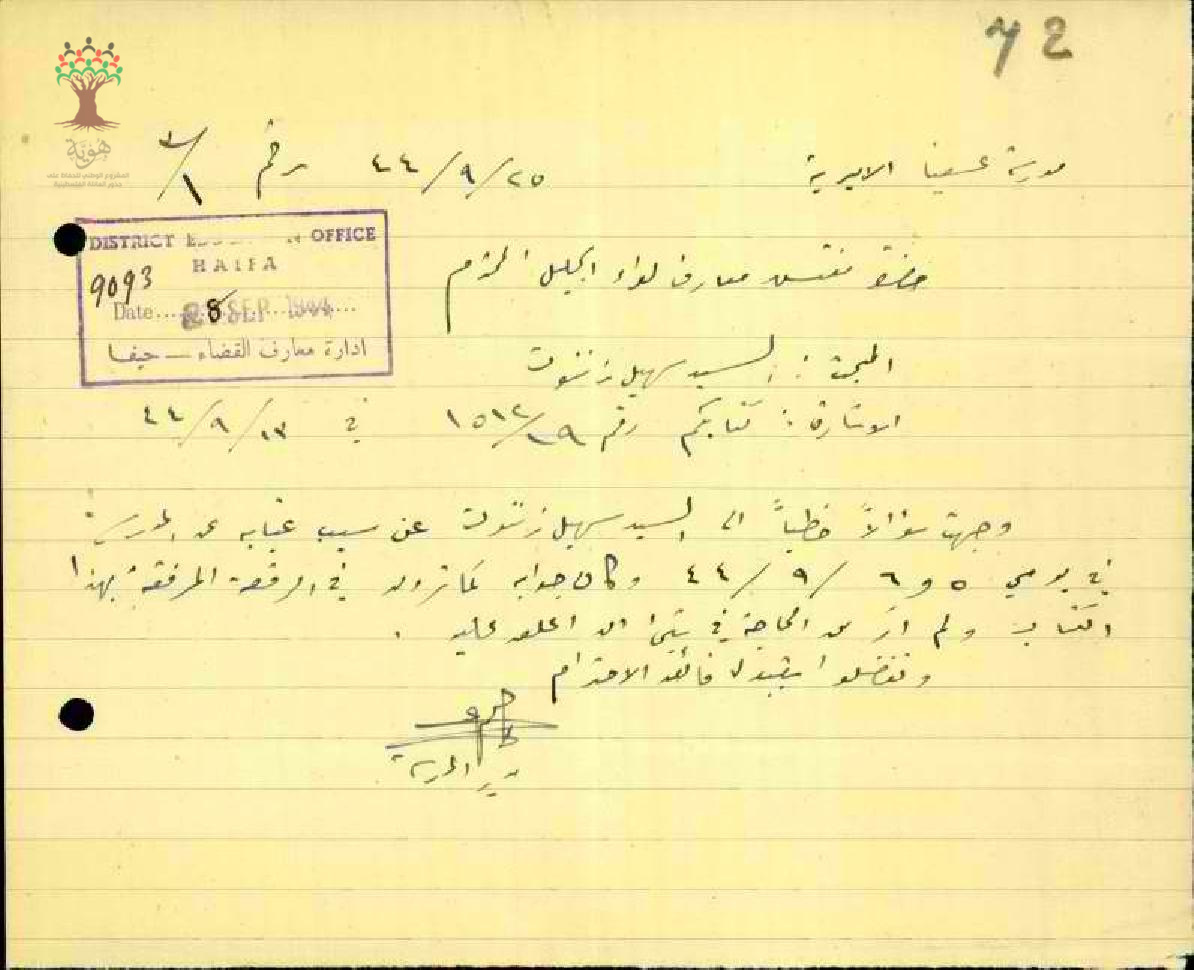 72
هوية
المشروع الوطني للحفاظ على
جذور العائلة الفلسطينية
مدرسة عسفيا الاميرية ٢٥/٩/٤٤ رقم ٣/١
DISTRICT OFFICE
HAIFA
9093
Date 28 SEP 1944
ادارة معارف القضاء — حيفا
حضرة مفتش معارف لواء الجليل المحترم
المبحث : السيد سهيل زنتوت
الاشارة : كتابكم رقم ١٥١٢/١٩ في ١٣/٩/٤٤
وجهت سؤالاً خطياً الى السيد سهيل زنتوت عن سبب غيابه عن المدرسة
في يومي ٥ و ٦/٩/٤٤ وكان جوابه كما ترون في الرقعة المرفقة بهذا
الكتاب ولم ار من الحاجة في شيء ان اعلق عليه .
وتفضلوا بقبول فائق الاحترام
مدير المدرسة